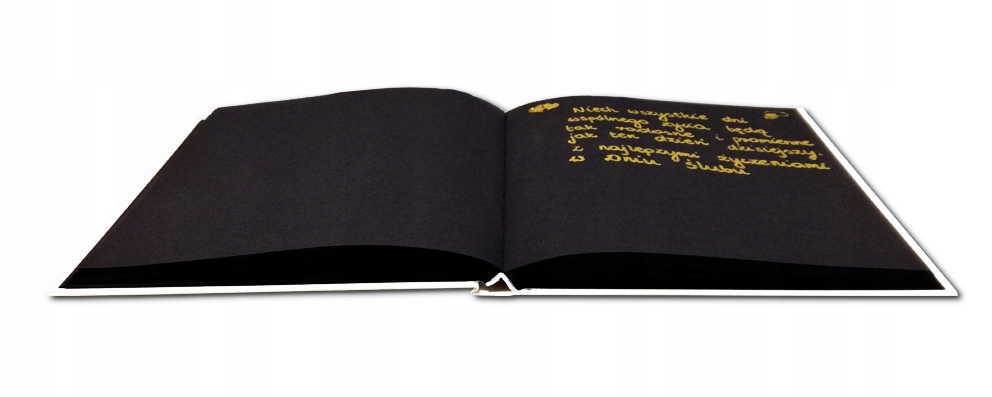 Niech wszystkie dni
wspólnego życia będą
tak radosne i promienne
jak ten dzień dzisiejszy.
z najlepszymi życzeniami
w Dniu Ślubu